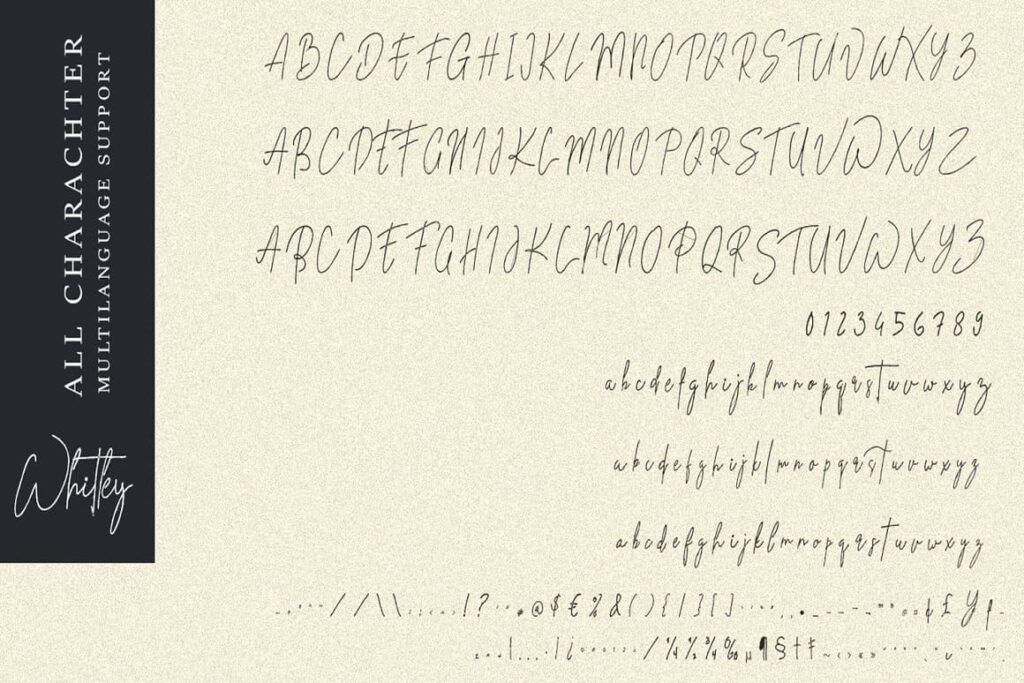 ALL CHARACHTER
MULTILANGUAGE SUPPORT
Whitley
ABCDEFGHIJKLMNOPQRSTUVWXYZ
ABCDEFGHIJKLMNOPQRSTUVWXYZ
ABCDEFGHIJKLMNOPQRSTUVWXYZ
0123456789
abcdefghijklmnopqrstuvwxyz
abcdefghijklmnopqrstuvwxyz
abcdefghijklmnopqrstuvwxyz
//\\ !? @$€%&(){|}[] ¢£¥
/¼½¾‰µ¶§†‡